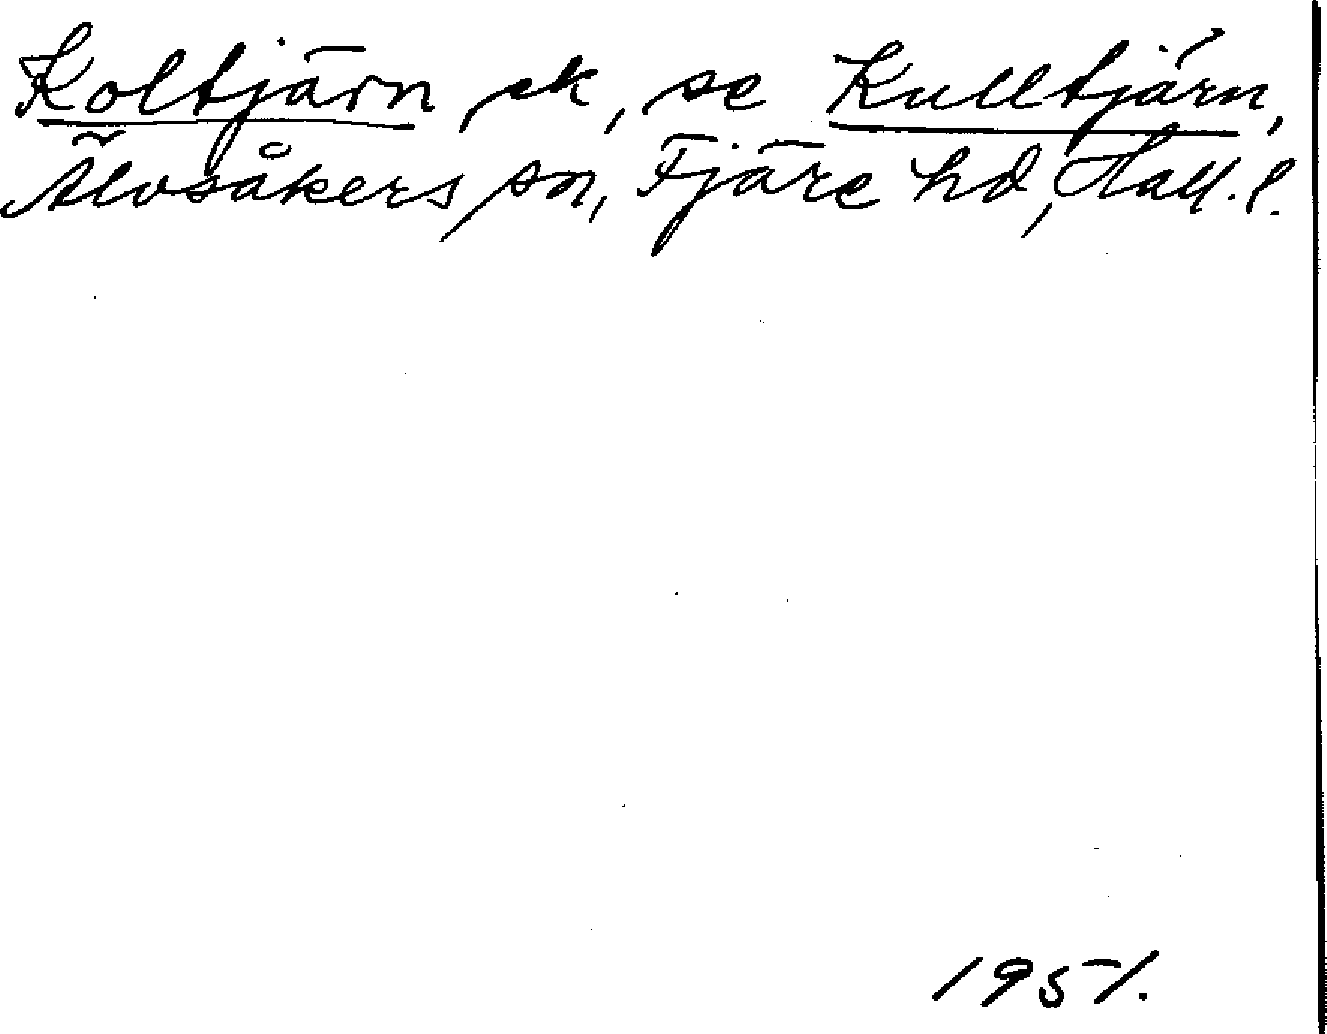 Koltjärn, ek, se Kulltjärn,
Älvsåkers sn, Fjäre hd, Hall. l.
1951.